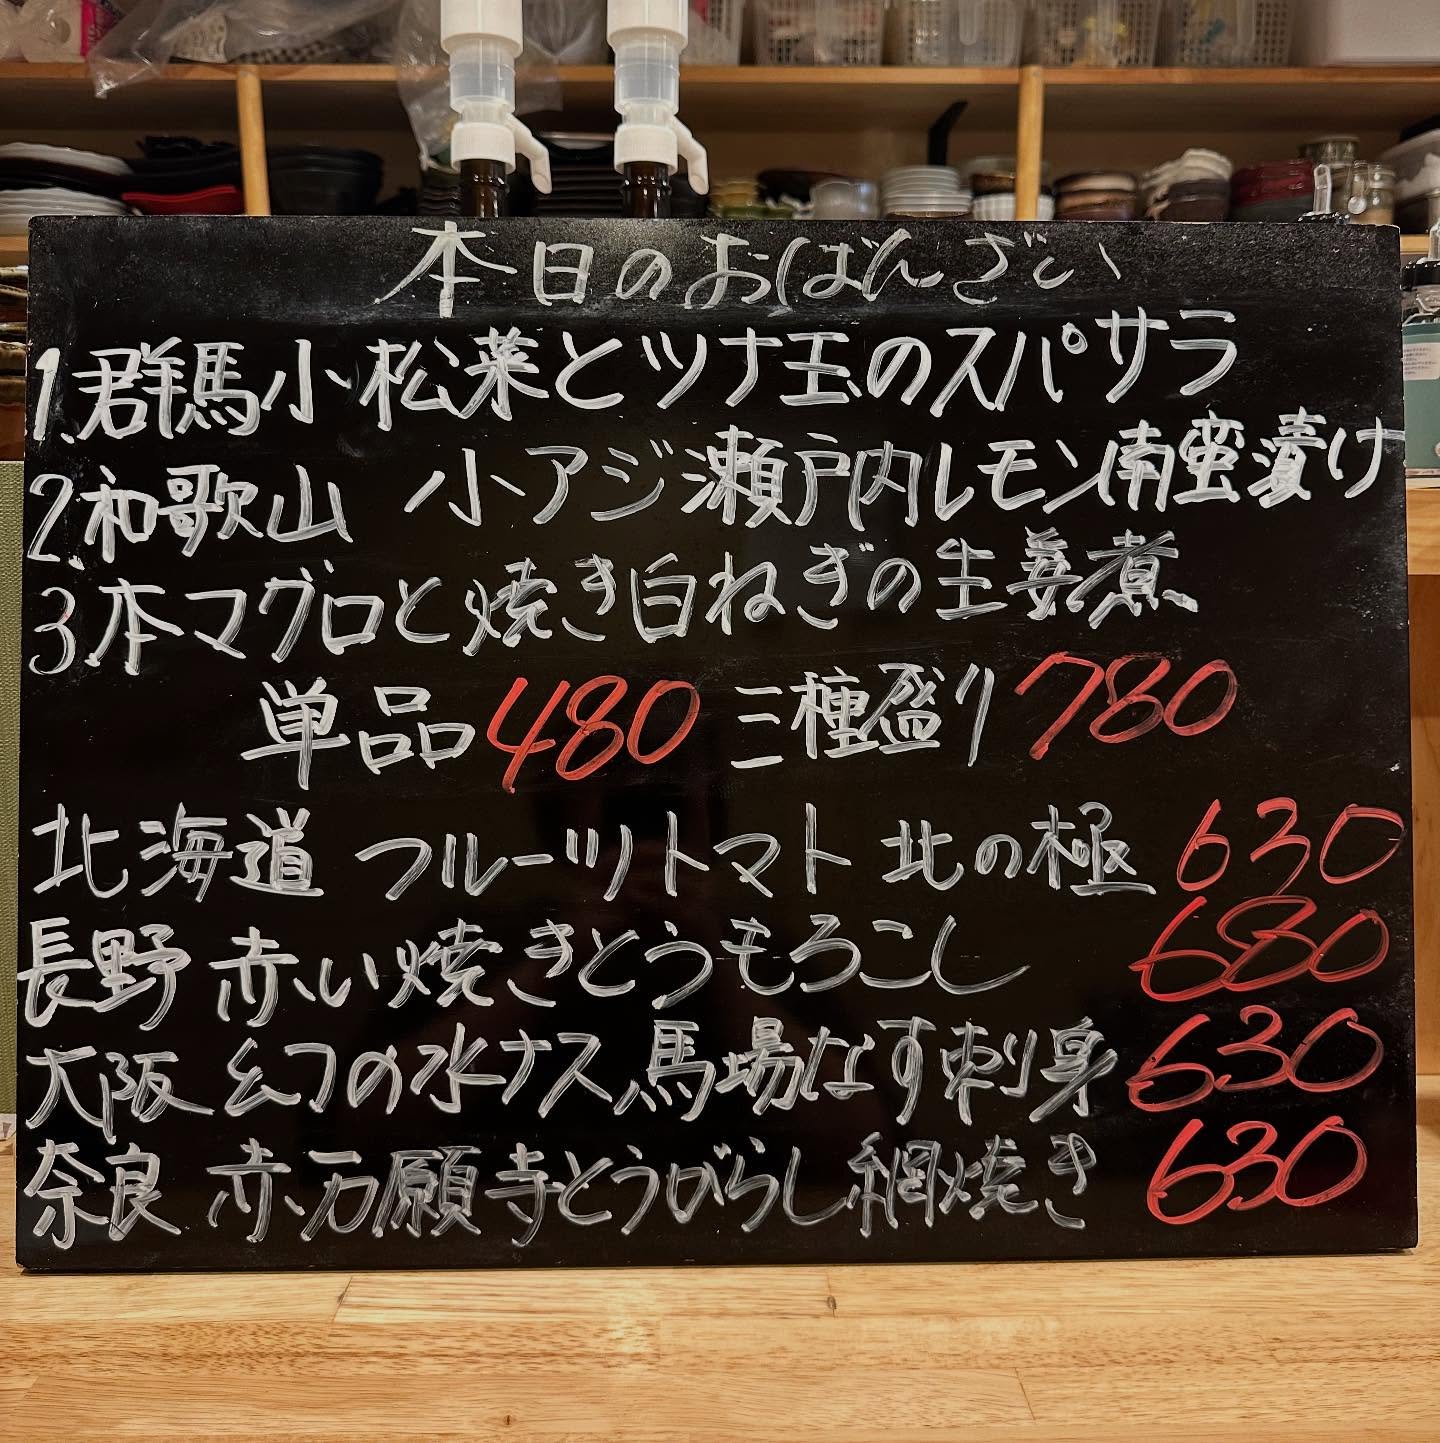 本日のおばんざい
1.群馬小松菜とツナ玉のスパサラ
2.和歌山 小アジ瀬戸内レモン南蛮漬け
3.本マグロと焼き白ねぎの生姜煮
単品480 三種盛り780
北海道 フルーツトマト 北の極 630
長野 赤い焼きとうもろこし 680
大阪 幻の水ナス、馬場なす刺身 630
奈良 赤万願寺とうがらし網焼き 630